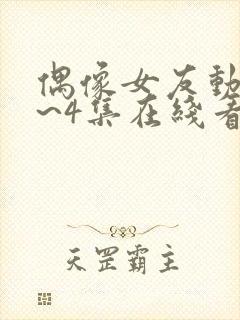 偶像女友動
~4集在綫看
天罡霸主